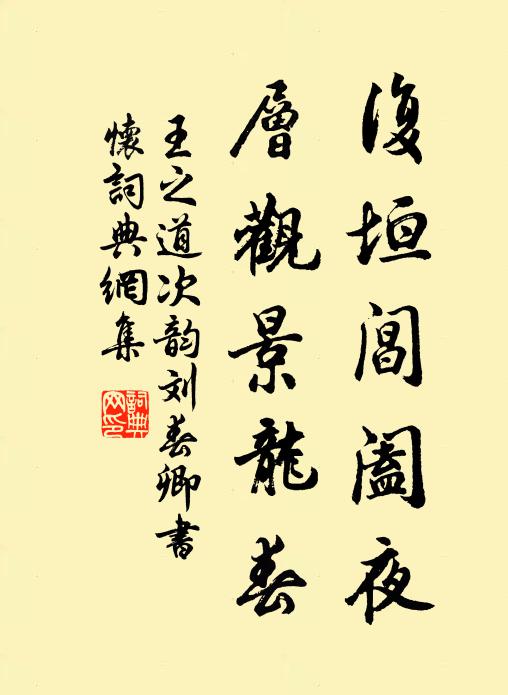 復垣閶闔夜
層觀景龍春
王之道次韵刘春卿書
懷詞典網集
詞典
网印